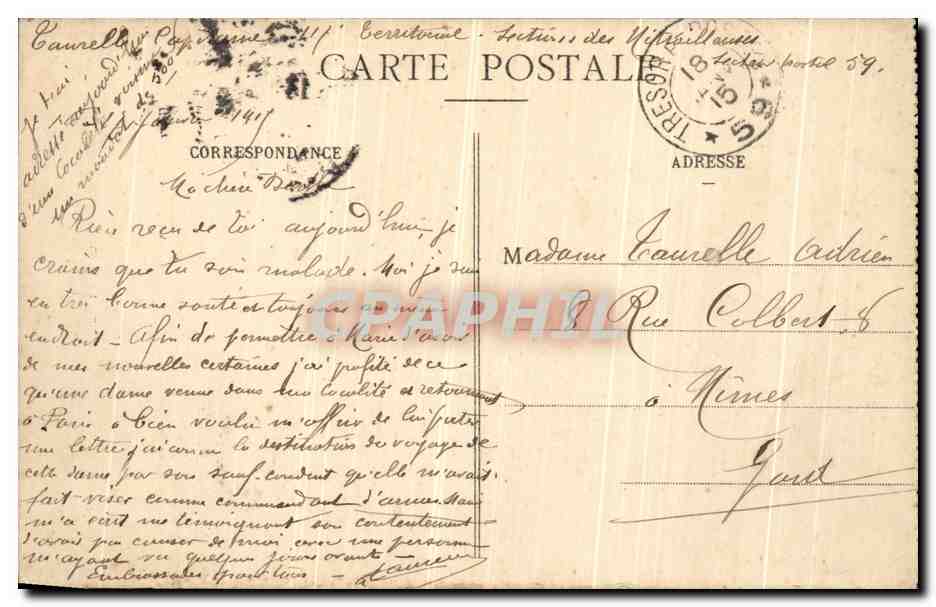 Taurelle Caporal 117 Territorial - Sections des Mitrailleuses
Secteur postal 59.
CARTE POSTALE
TRESOR
18
15
59
CORRESPONDANCE
ADRESSE
Je
adresse aujourd'hui
d'une
un mandat de 500
Janvier 1915
Ma chère
Rien reçu de toi aujourd'hui, je
crains que tu sois malade. Moi je suis
en très bonne santé et toujours au même
endroit - Afin de permettre à Marie d'avoir
de mes nouvelles certaines j'ai profité de ce
qu'une dame venue dans ma localité et retournant
à Paris a bien voulu m'offrir de lui porter
une lettre, j'ai connu la destination du voyage de
cette dame par son sauf-conduit qu'elle m'avait
fait viser comme commandant d'armes. Marie
m'a écrit me témoignant son contentement
d'avoir pu causer de moi avec une personne
m'ayant vu quelques jours avant -
Embrassades pour tous - Taurelle
Madame Taurelle Adrien
8 Rue Colbert 8
à Nîmes
Gard
CPAPHIL